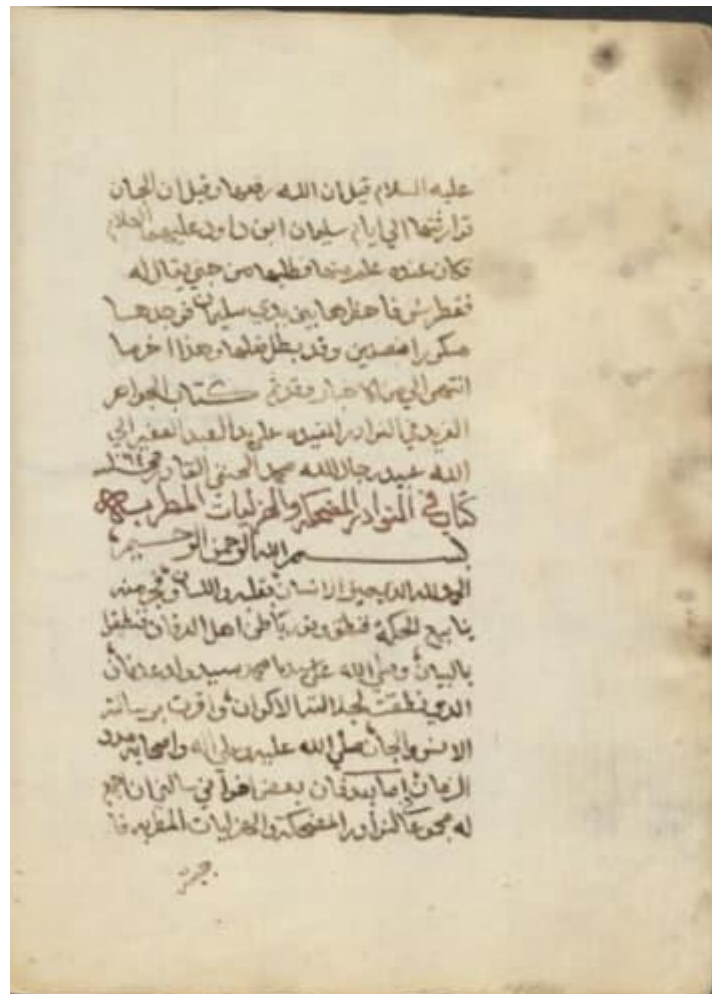 عليه السلام قيل ان الله رفعها وقيل ان الجان
توارثتها الي ايام سليمان ابن داود عليهما السلام
فكان عنده علم منها فطلبها من جني يقال له
فقطرش فاحظرها بين يدي سليمان فوجدها
مكسورا نصفين وقد بطل فعلها وهذا اخر ما
انتهى الي من الاخبار وقد تم كتاب الجواهر
الفريد في النوادر المفيده علي يد العبد الفقير الي
الله عبيد رجال الله محمد الحنفي القادري
كتاب في النوادر المضحكة والهزليات المطربه
بسم الله الرحمن الرحيم
الحمد لله الذي جعل الانسان بقلبه واللسان وفجر منه
ينابيع الحكمة فنطق ونور باطن اهل العرفان
بالبيان وصلي الله علي سيدنا محمد سيد ولد عدنان
الذي نطقت لجلالته الاكوان واقرت برسالته
الانس والجان صلي الله عليه وعلي اله واصحابه مدد
الزمان اما بعد فان بعض اخواني سالني ان اجمع
له مجموعا لنوادر المضحكة والهزليات المطربه فا
جبته